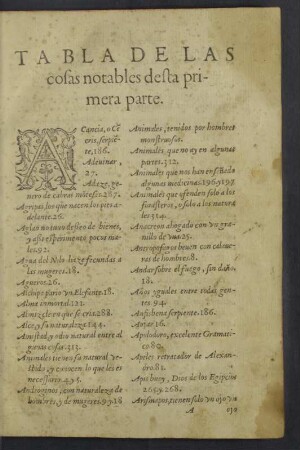 TABLA DE LAS
cosas notables desta pri-
mera parte.
ACancia, o Ce
serpiẽ
te, 186.
Adeuinar,
27.
Adaze, ge-
nero de cabras
287.
Agripas los que nacen los pies a-
delante. 26.
Aglao no tuuo desseo de bienes,
y assi
poco ma-
les. 92.
Agua del Nilo haze fecundas a
las mugeres. 18.
Agueros. 26.
un Elefante. 18.
Alma immortal. 121.
Almizcle en que se cria. 288.
Alce, y su naturaleza. 144.
Amistad, y odio natural entre al
gunas cosas. 311.
Animales tienen su natural ve-
stido, y conocen lo que les es
necessario. 495.
Androginos, con naturaleza de
hombres, y de mugeres. 99. 18
Animales, tenidos por hombres
monstruosos.
Animales, que no ay en algunas
partes. 312.
Animales que nos han enseñado
algunas medicinas. 196. y 197
Animales que ofenden solo a los
forasteros, o solo a los natura
les 314.
Anacreon ahogado con vn gra-
nillo de vua. 25.
Antropofagos beuen con calaue-
ras de hombres. 8.
Andar sobre el fuego, sin daño,
18.
Años yguales entre vidas
tes. 94.
Anfisibena serpiente. 186.
Apolodoro, excelente Gramati-
co. 80.
Apeles retratador de Alexan-
dro. 81.
Apis buey, Dios de los Egipcios
265. y 268.
Arismapos, tienen solo vn ojo
A
ojo